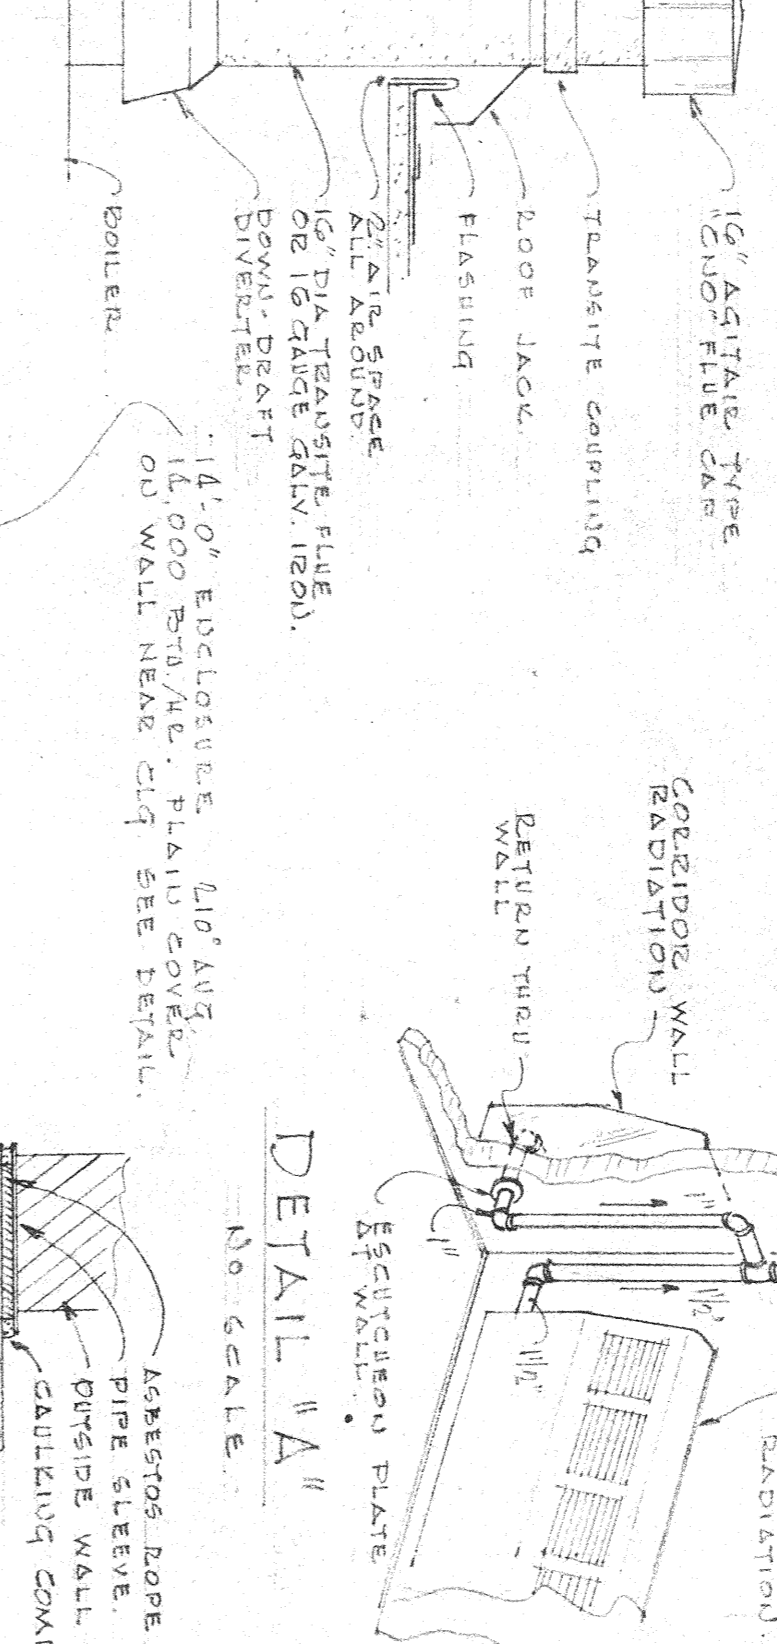 16" AGITAIR TYPE
"CNO" FLUE CAP
TRANSITE COUPLING
ROOF JACK.
FLASHING
2" AIR SPACE
ALL AROUND.
16" DIA TRANSITE FLUE
OR 16 GAUGE GALV. IRON.
DOWN-DRAFT
DIVERTER
BOILER
14'-0" ENCLOSURE 210° AVG.
14,000 BTU./HR. PLAIN COVER
ON WALL NEAR CLG SEE DETAIL.
CORRIDOR WALL
RADIATION
RETURN THRU
WALL
1"
1"
1 1/2"
1 1/2"
ESCUTCHEON PLATE
AT WALL.
RADIATION.
DETAIL "A"
NO SCALE
ASBESTOS ROPE
PIPE SLEEVE.
OUTSIDE WALL
CAULKING COM